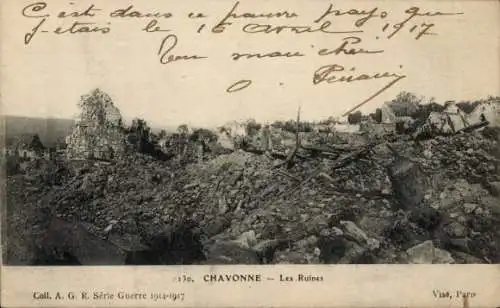 C'est dans ce pauvre pays que
j'etais le 16 avril 1917
Ton mon cher
130. CHAVONNE — Les Ruines
Coll. A. G. R. Série Guerre 1914-1917
Visé, Paris